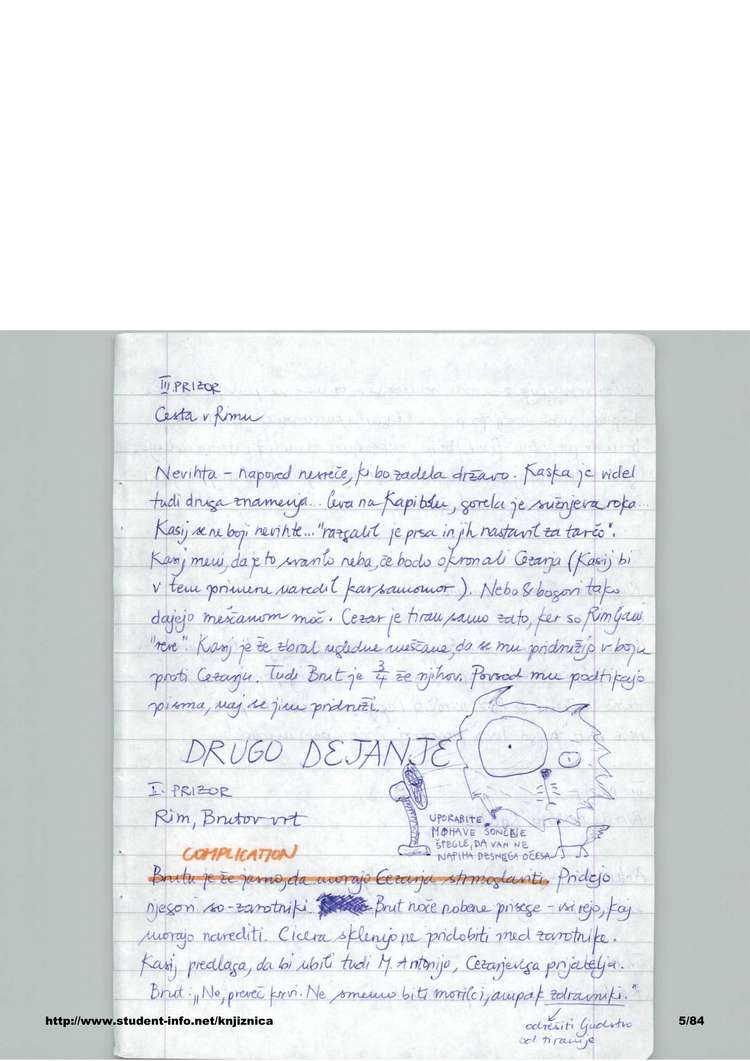 III. PRIZOR
Cesta v Rimu
Nevihta - napoved nesreče, ki bo zadela državo. Kaska je videl
tudi druga znamenja... leva na Kapitolu, gorela je sužnjeva roka...
Kasij se ne boji nevihte... "razgalil je prsa in jih nastavil za tarčo".
Kasij meni, da je to svarilo neba, če bodo okronali Cezarja (Kasij bi
v tem primeru naredil kar samomor). Nebo & bogovi tako
dajejo meščanom moč. Cezar je tiran samo zato, ker so Rimljani
"reve". Kasij je že zbral ugledne meščane, da se mu pridružijo v boju
proti Cezarju. Tudi Brut je 3/4 že njihov. Povsod mu podtikajo
pisma, naj se jim pridruži.
DRUGO DEJANJE
I. PRIZOR
Rim, Brutov vrt
UPORABITE
MOHAVE SONČNE
ŠPEGLE, DA VAN NE
NAPIHA DESNEGA OČESA
COMPLICATION
Brutu je že jasno, da morajo Cezarja strmoglaviti. Pridejo
njegovi so-zarotniki. Brut noče nobene prisege - vsi vejo, kaj
morajo narediti. Cicera sklenijo ne pridobiti med zarotnike.
Kasij predlaga, da bi ubili tudi M. Antonijo, Cezarjevega prijatelja.
Brut: "No, preveč krvi. Ne smemo biti morilci, ampak zdravniki."
odrešiti ljudstvo
od tiranije
http://www.student-info.net/knjiznica
5/84